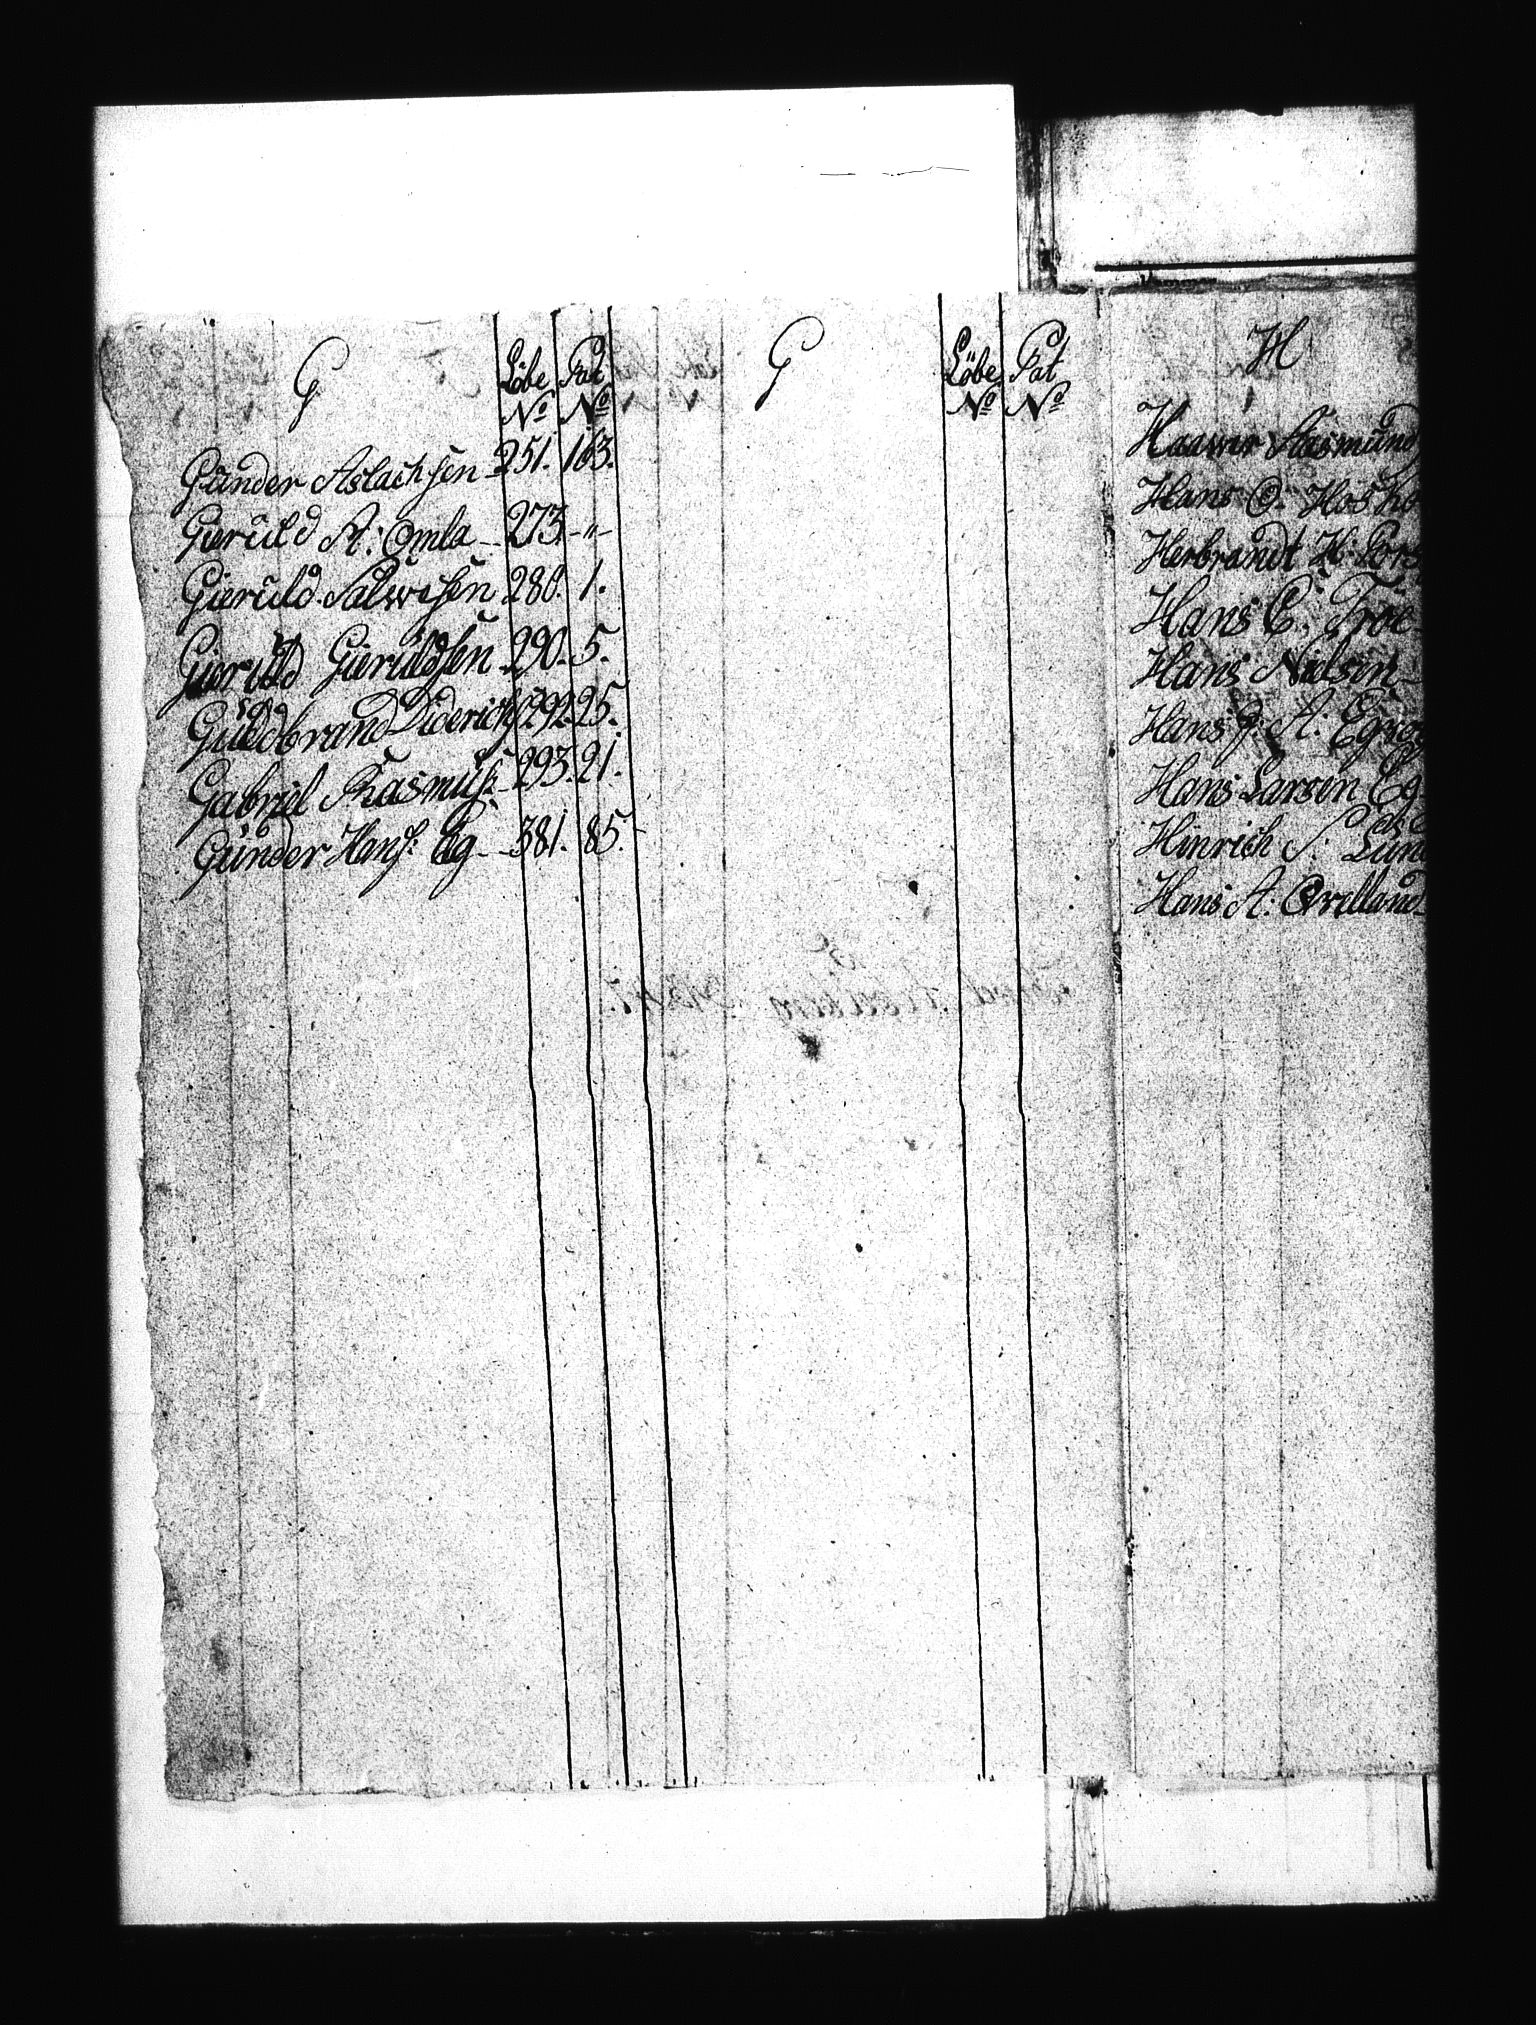 G
Löbe Pat
No No
Gunder Aslachsen 251. 163.
Gieruld A: Omla 273. -"-
Gieruld Salvesen 280. 1.
Gieruld Gieruldsen 290. 5.
Guldbrand Diderichs: 292. 25.
Gabriel Rasmuss: 293. 21.
Gunder Hans: Eg 381. 85.
G
Löbe Pat
No No
H
Haaver Aasmund
Hans O. Hosho
Herbrandt H:
Hans C. Troe
Hans Nielsen
Hans J. A: Egro
Hans Larsen Eg
Hinrich S: Lund
Hans A: Qvelland